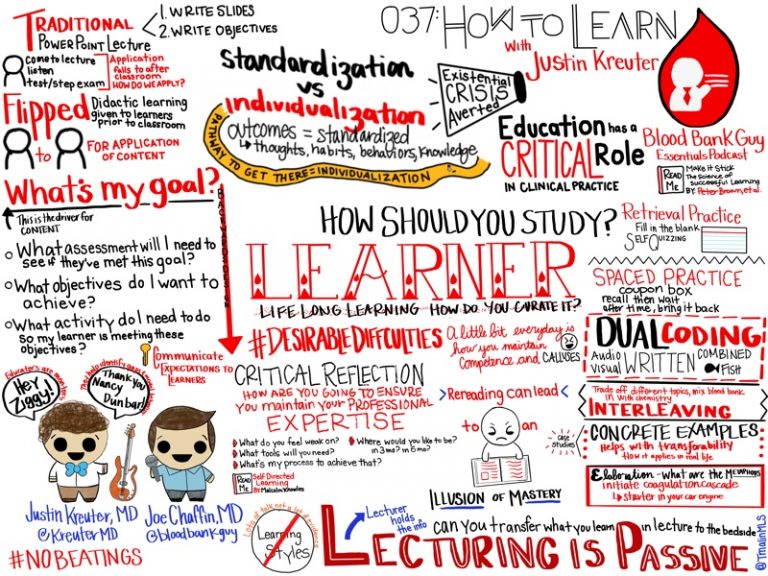 TRADITIONAL
POWERPOINT LECTURE
1. WRITE SLIDES
2. WRITE OBJECTIVES
Come to lecture
listen
test/step exam
Application
falls to after
classroom
HOW DO WE APPLY?
Flipped
Didactic learning
given to learners
prior to classroom
to
FOR APPLICATION
OF CONTENT
What's my goal?
This is the driver for
CONTENT
What assessment will I need to
see if they've met this goal?
What objectives do I want to
achieve?
What activity do I need to do
so my learner is meeting these
objectives?
Communicate
EXPECTATIONS TO
LEARNERS
standardization
vs
individualization
outcomes = standardized
thoughts, habits, behaviors, knowledge
PATHWAY TO GET THERE = INDIVIDUALIZATION
Existential
CRISIS
Averted
037: HOW TO LEARN
With
Justin Kreuter
Education has a
CRITICAL Role
IN CLINICAL PRACTICE
Blood Bank Guy
Essentials Podcast
READ
ME
MAKE IT STICK
The Science of
successful Learning
BY: Peter Brown, et al.
HOW SHOULD YOU STUDY?
LEARNER
LIFE LONG LEARNING HOW DO YOU CURATE IT?
#DESIRABLE DIFFCULTIES
A little bit everyday is
how you maintain
Competence and CALLUSES
Retrieval Practice
Fill in the blank
SELF QUIZZING
SPACED PRACTICE
coupon box
recall then wait
after time, bring it back
DUAL CODING
Audio
visual
WRITTEN
COMBINED
Fish
Trade off different topics, mix blood bank
in with chemistry
INTERLEAVING
CONCRETE EXAMPLES
Helps with transferability
How it applies in real life
case
studies
Elaboration - what are the
initiate coagulation cascade
starter in your car engine
CRITICAL REFLECTION
HOW ARE YOU GOING TO ENSURE
YOU MAINTAIN YOUR PROFESSIONAL
EXPERTISE
What do you feel weak on?
What tools will you need?
What's my process to achieve that?
Where would you like to be?
in 3mo? in 6mo?
READ
ME
Self Directed
Learning
By: Malcolm Knowles
Rereading can lead
to an
ILLUSION OF MASTERY
HEY,
Ziggy!
Thank you
Nancy
Dunbar!
Justin Kreuter, MD
@KreuterMD
Joe Chaffin, MD
@bloodbankguy
#NOBEATINGS
Learning
Styles
Lecturer
holds
the info
can you transfer what you learn in lecture to the bedside
LECTURING IS PASSIVE
@TmalinMLS